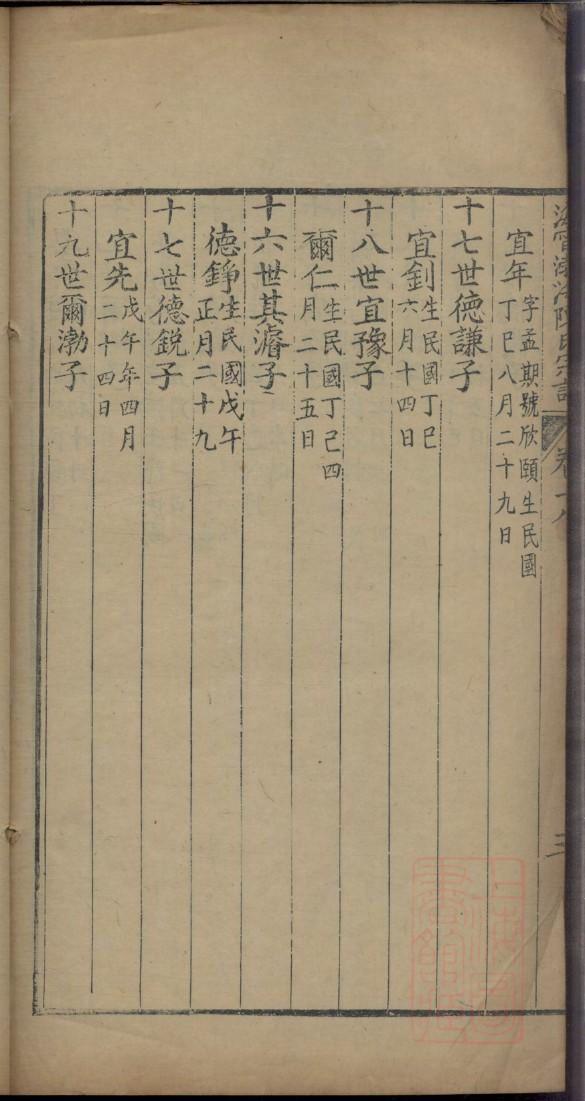 宜年字孟期號欣頤生民國丁巳八月二十九日
十七世德謙子
宜釗生民國丁巳六月十四日
十八世宜豫子
爾仁生民國丁巳四月二十五日
十六世其濬子
德錚生民國戊午正月二十九
十七世德銳子
宜先戊午年四月二十四日
十九世爾渤子